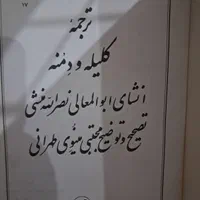 ترجمهٔ
کلیله و دمنه
انشای ابوالمعالی نصرالله منشی
تصحیح و توضیح مجتبی مینوی طهرانی